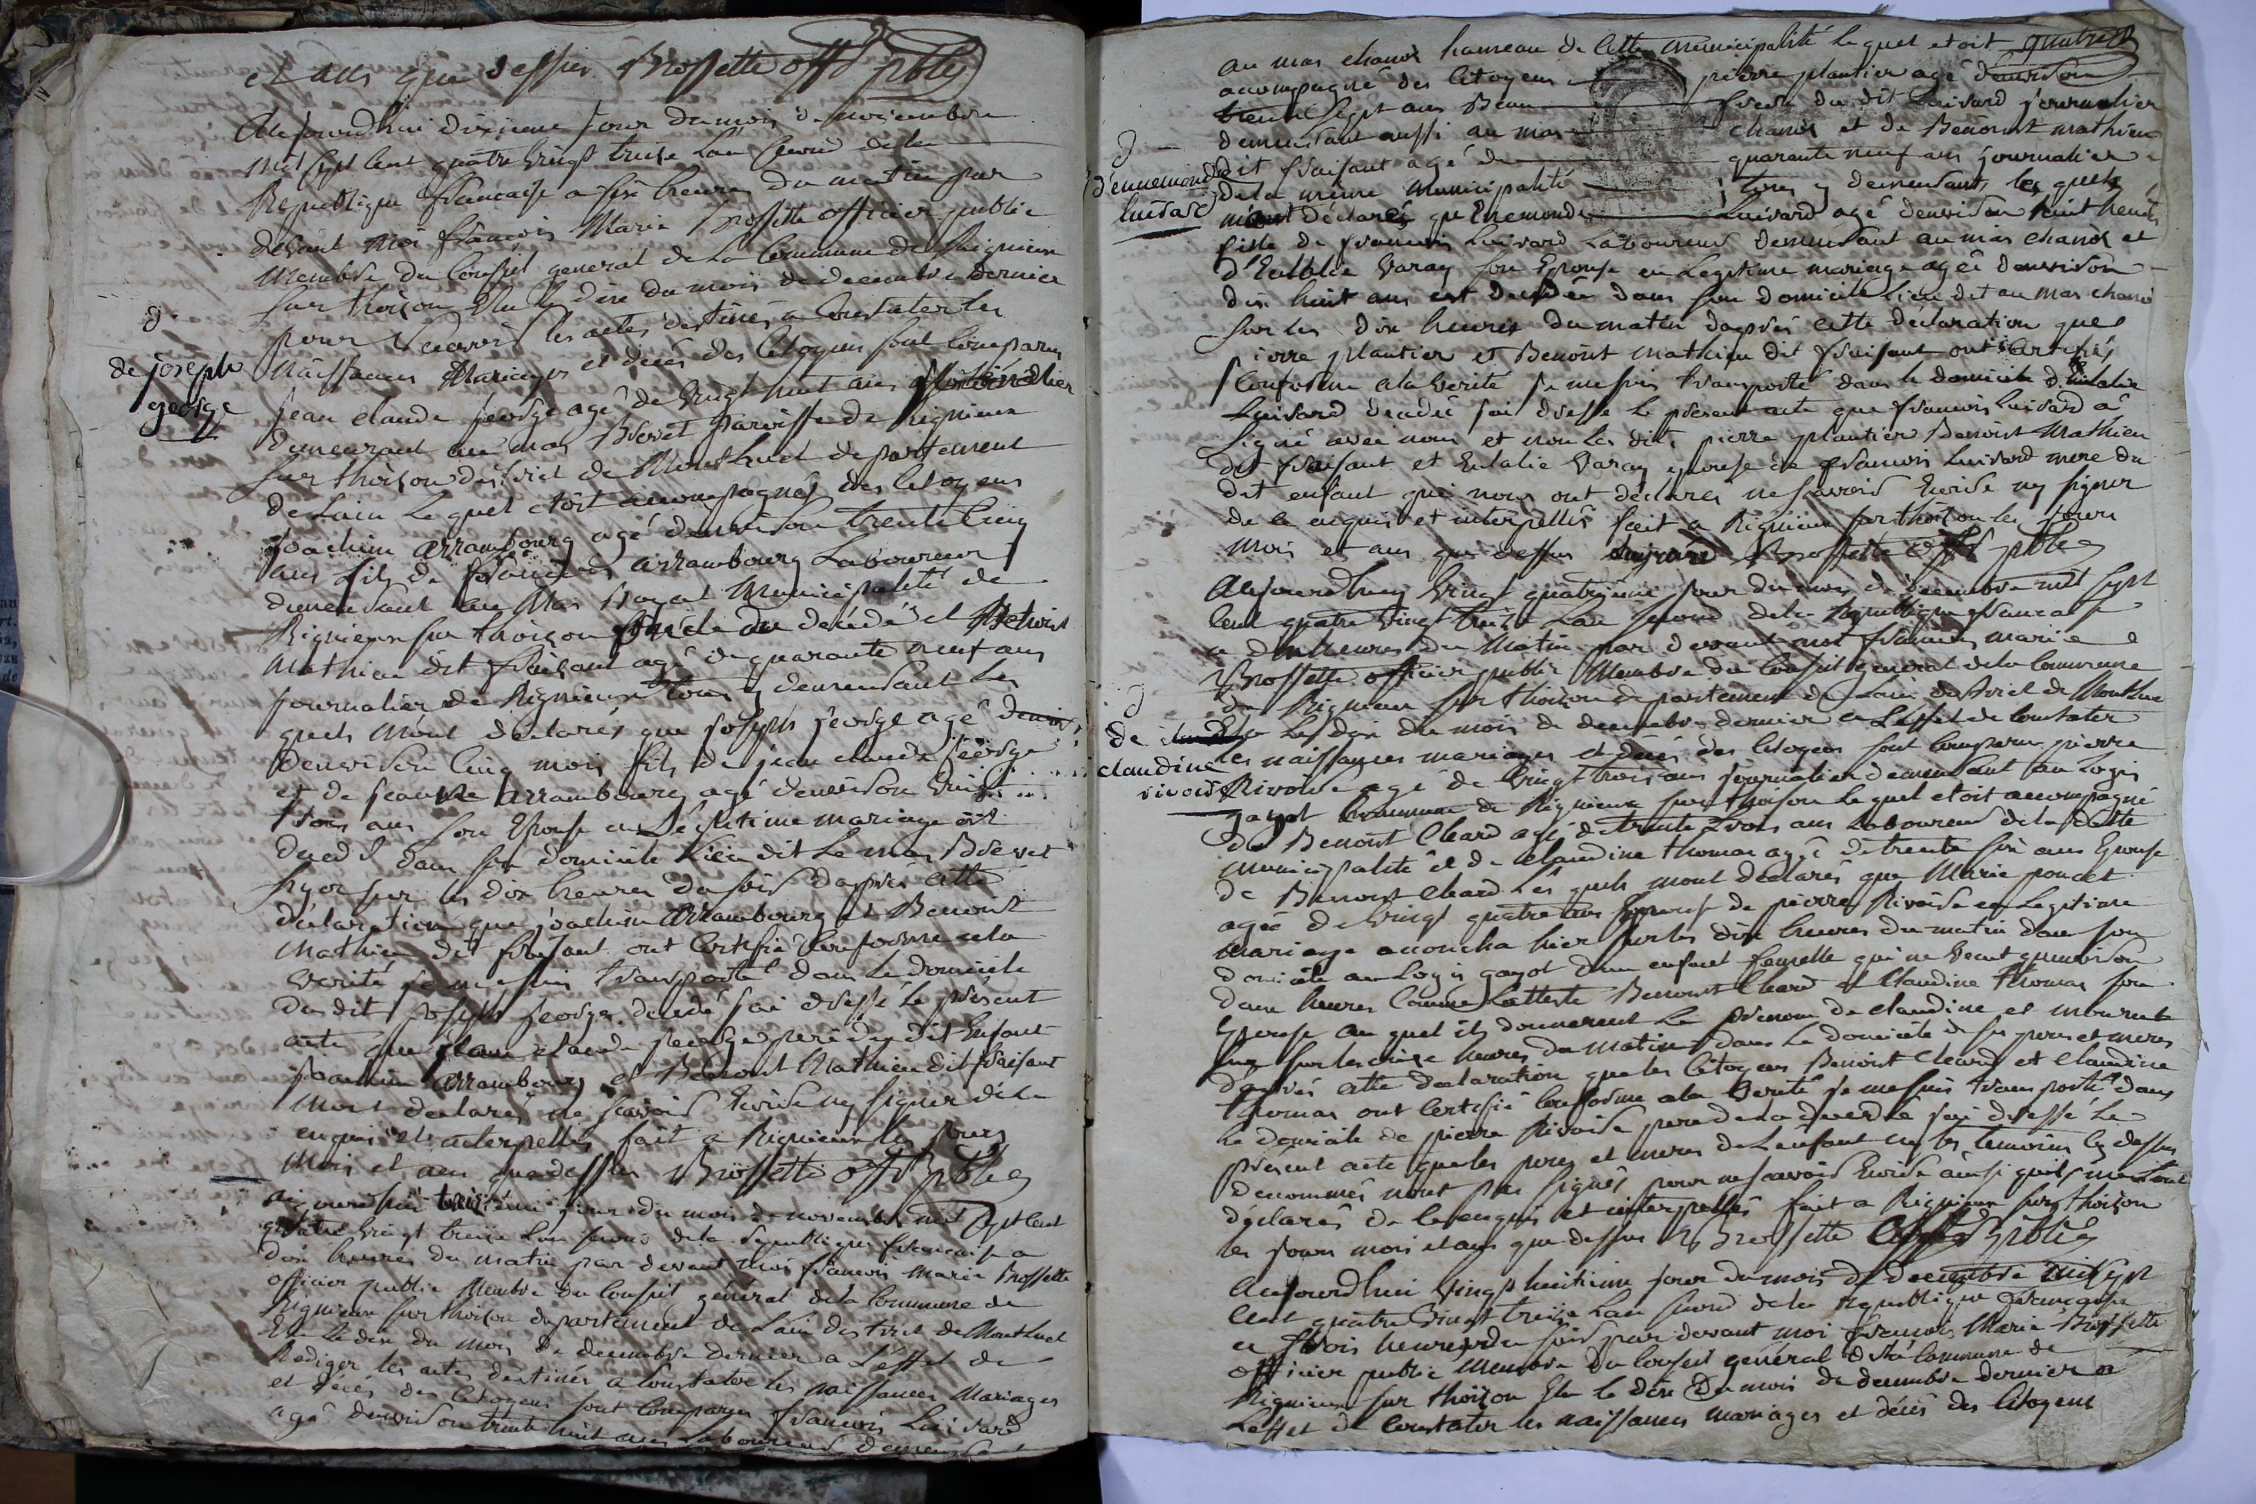 et ans que dessus Brossette offr pble
Aujourd'hui dixieme jour du mois de novembre
mil sept cent quatre vingt treize lan second de la
Republique francaise a six heures du matin par
devant moi francois Marie Brossette officier public
Membre du Conseil general de la Commune de Rignieux
sur thoizon Elu le dix du mois de decembre dernier
pour recevoir les actes destinés a Constater les
Naissances Mariages et décés des Citoyens sont Comparus
d
de joseph
george
jean claude george agé de vingt huit ans
demeurant au mas Brevet parroisse de Rignieux
sur thoizon district de Montluel departement
de Lain Lequel étoit accompagné des Citoyens
joachim arrambourg agé denviron trente Cinq
ans fils de arrambourg Laboureur
demeurant au Mas Municipalité de
Rignieux sur thoizon oncle du décédé et Benoist
Mathieu dit fraisant agé de quarante neuf ans
journalier de Rignieux tous y demeurant Les
quels m'ont déclarés que joseph george agé
denviron Cinq mois fils de jean claude george
et de jeanne arrambourg agé denviron vingt
trois ans son Epouse en Légitime mariage est
décédé dans son domicile Lieu dit Le mas Brevet
hyer sur les dix heures du soir dapprés Cette
déclaration que joachim arrambourg et Benoist
Mathieu dit fraisant ont Certifié Conforme a la
verité je me suis transporté dans Le domicile
du dit joseph george décédé jai dressé Le present
acte que jean claude george pere du dit Enfant
joachim arrambourg et Benoist Mathieu dit fraisant
mont declarés ne scavoir Ecrire ny signer de Ce
enquis et interpellés fait a Rignieux les jours
mois et ans que dessus Brossette offr pble
aujourdhui jour du mois de novembre mil sept cent
quatre vingt treize lan second de la Republique francaise a
dix heures du matin par devant moi francois Marie Brossette
officier public Membre du Conseil général de la Commune de
Rignieux sur thoizon departement de Lain district de Montluel
Elu le dix du mois de decembre dernier a L'effet de
Rediger les actes destinés a Constater les naissances Mariages
et décés des Citoyens sont Comparus francois Luisard
agé denviron trente huit ans Laboureur demeurant
au mas chanox hameau de Cette municipalité Lequel etoit
accompagné des Citoyens pierre plantier agé denviron
trente sept ans frere du dit Luisard journalier
demeurant aussi au mas chanox et de Benoist mathieu
dit fraisant agé de quarante neuf ans journalier
d
d'ennemonde
luisard
de la même municipalité tous y demeurants les quels
mont déclarés qu'Enemonde Luisard agé denviron huit heures
fille de francois Luisard Laboureur demeurant au mas chanox et
d'Eulalie Varay son Epouse en Legitime mariage agée denviron
dix huit ans est décédée dans son domicile Lieu dit au mas chanox
sur les dix heures du matin dapprés cette déclaration que
pierre plantier et Benoist mathieu dit fraisant ont certifiés
Conforme a la verité je me suis transporté dans le domicile
Luisard décédée jai dressé le present acte que francois Luisard a
signé avec nous et non les dits pierre plantier Benoist Mathieu
dit fraisant et Eulalie Varay epouse de francois Luisard mere du
dit enfant qui nous ont déclarés ne scavoir Ecrire ny signer
de ce enquis et interpellés fait a Rignieux sur thoizon les jours
mois et ans que dessus Luisard Brossette offr pble
Aujourdhuy vingt quatrieme jour du mois de decembre mil sept
cent quatre vingt treize Lan second de la Republique francaise
a dix heures du Matin par devant moi francois marie
Brossette officier public Membre du Conseil general de la Commune
de Rignieux sur thoizon departement de Lain district de Montluel
d
de
claudine
rivoire
Elu Le dix du mois de decembre dernier a L'effet de Constater
Les naissances mariages et décés des Citoyens sont Comparus pierre
Rivoire agé de vingt trois ans journalier demeurant au Logis
gayot Commune de Rignieux sur thoizon Lequel etoit accompagné
de Benoist Cleard agé de trente trois ans Laboureur de la ditte
municipalité et de claudine thomas agée de trente six ans Epouse
de Benoist Cleard Les quels mont déclarés que Marie poncet
agée de vingt quatre ans Epouse de pierre Rivoire en Legitime
mariage accoucha hier sur les dix heures du matin dans son
domicile au Logis gayot d'un enfant femelle qui ne vecut quenviron
deux heures Comme L'atteste Benoist Cleard et Claudine Thomas son
Epouse au quel ils donnerent Le prenom de claudine et mourut
hier sur les onze heures du matin dans Le domicile de ses pere et mere
dapprés cette declaration que les Citoyens Benoist Cleard et Claudine
Thomas ont Certifié Conforme a la Verité je me suis transporté dans
Le domicile de pierre Rivoire pere de la decedée jai dressé Le
présent acte que les pere et mere de L'enfant ny les temoins cy dessus
denommés nont pas signés pour ne scavoir Ecrire ainsi quils me Lont
déclarés de ce enquis et interpellés fait a Rignieux sur thoizon
les jours mois et ans que dessus Brossette offr pble
Aujourdhui vingt huitieme jour du mois de decembre mil sept
cent quatre vingt treize Lan second de la republique francaise
a trois heures du soir par devant moi francois Marie Brossette
officier public Membre du Conseil général de la Commune de
Rignieux sur thoizon Elu le dix du mois de decembre dernier a
Leffet de Constater les naissances mariages et décés des Citoyens